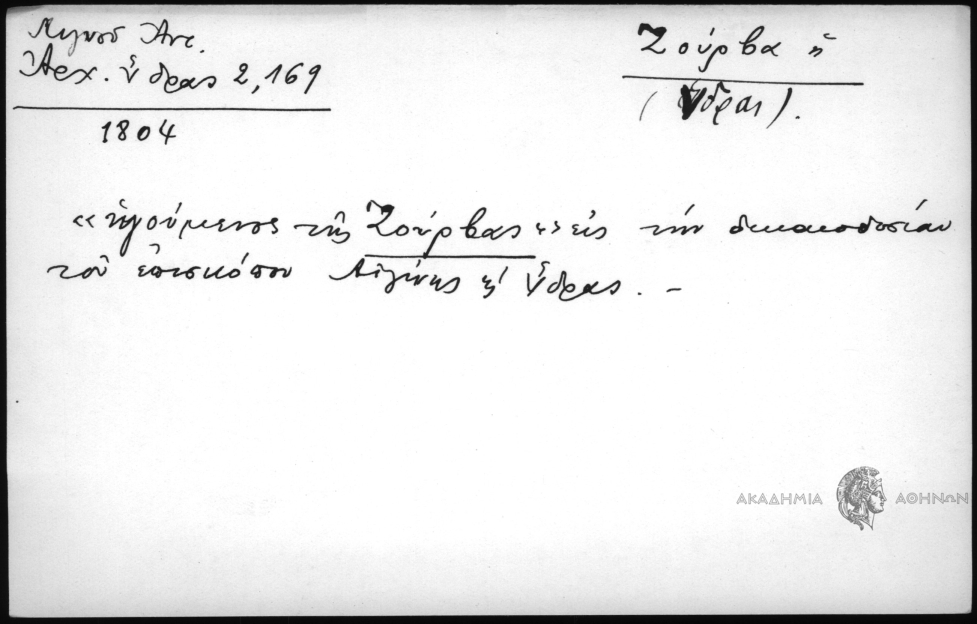 Λιγνοῦ Ἀντ.
Ἀρχ. Ὕδρας 2,169
1804
Ζούρβα ἡ
(Ὕδρας).
«ἡγούμενος τῆς Ζούρβας» εἰς τὴν δικαιοδοσίαν
τοῦ ἐπισκόπου Αἰγίνης ϗ Ὕδρας. –
ΑΚΑΔΗΜΙΑ ΑΘΗΝΩΝ